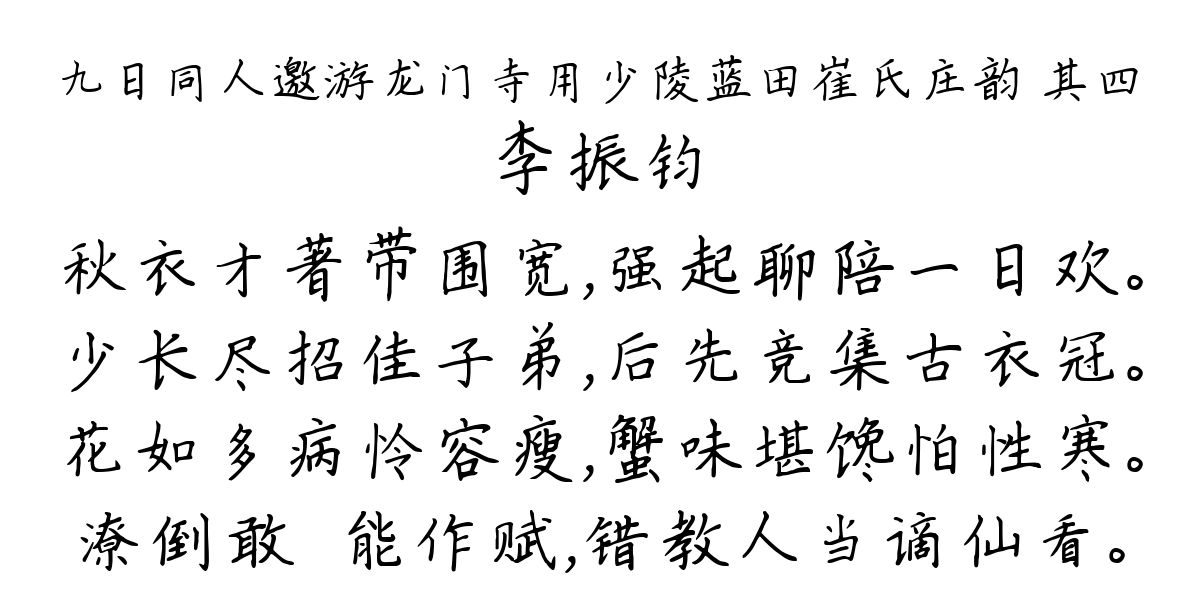 九日同人邀游龙门寺用少陵蓝田崔氏庄韵 其四
李振钧
秋衣才著带围宽,强起聊陪一日欢。
少长尽招佳子弟,后先竞集古衣冠。
花如多病怜容瘦,蟹味堪馋怕性寒。
潦倒敢 能作赋,错教人当谪仙看。